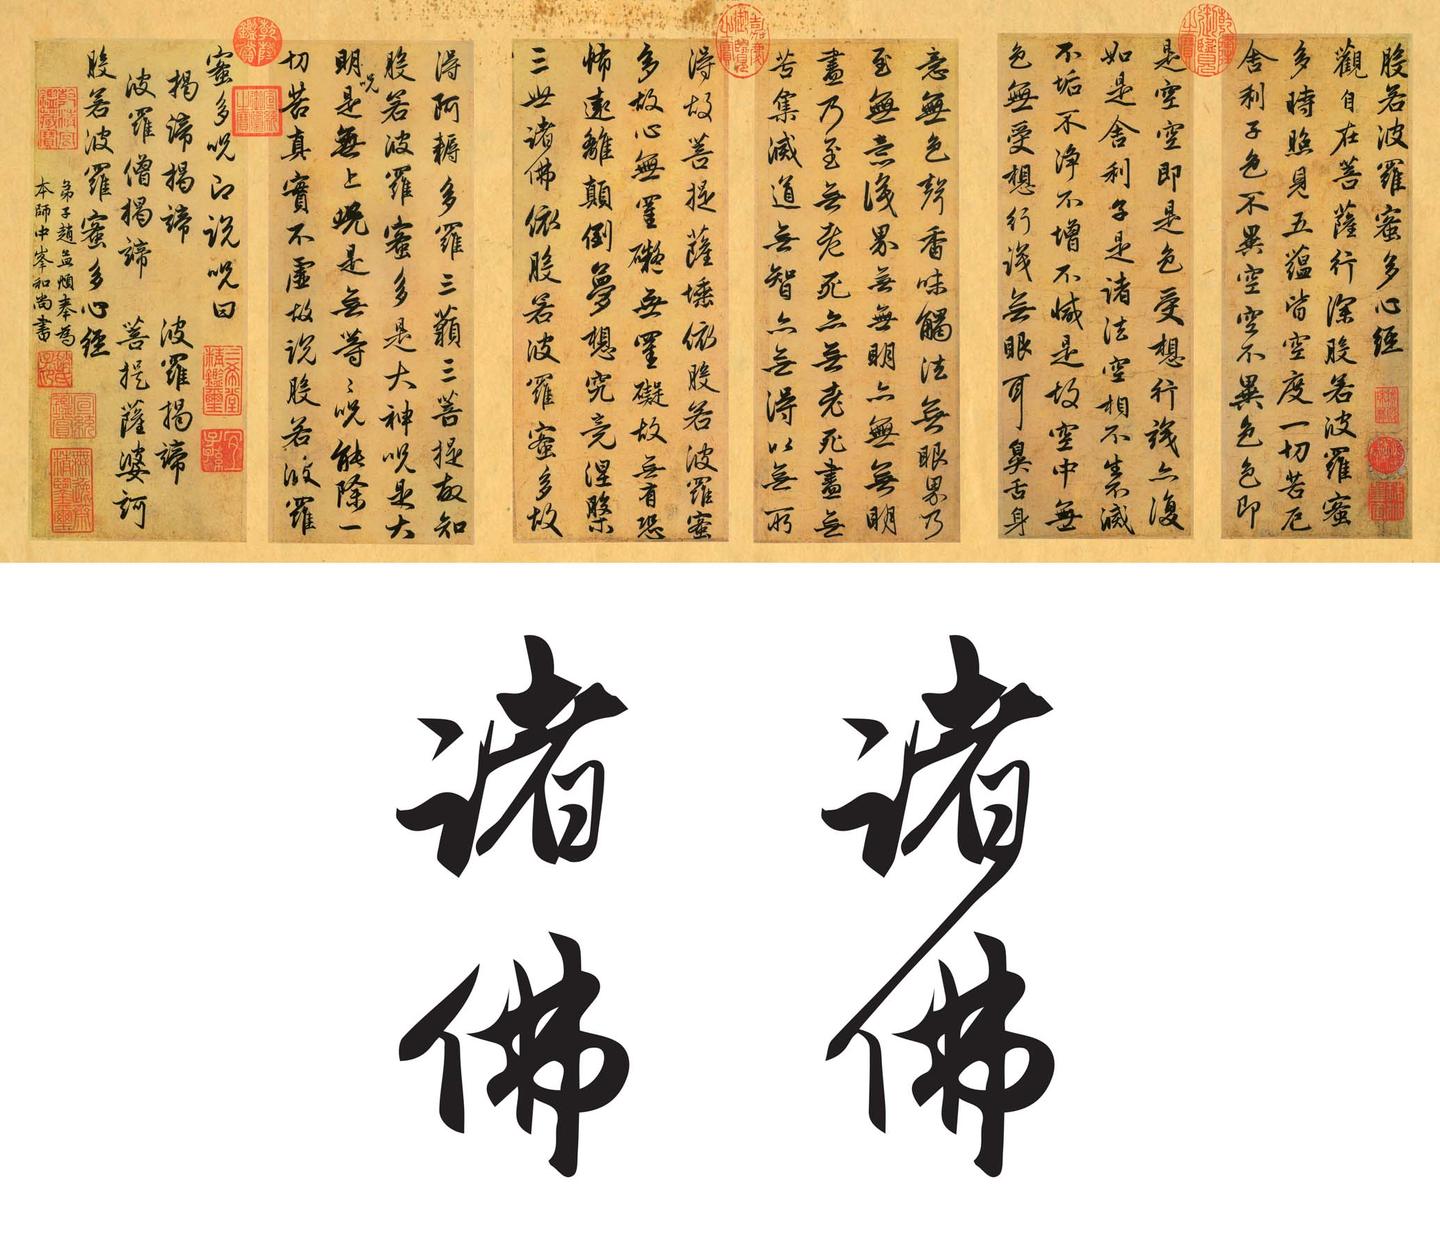 般若波羅蜜多心經
觀自在菩薩行深般若波羅蜜
多時照見五蘊皆空度一切苦厄
舍利子色不異空空不異色色即
是空空即是色受想行識亦復
如是舍利子是諸法空相不生不滅
不垢不淨不增不減是故空中無
色無受想行識無眼耳鼻舌身
意無色聲香味觸法無眼界乃
至無意識界無無明亦無無明
盡乃至無老死亦無老死盡無
苦集滅道無智亦無得以無所
得故菩提薩埵依般若波羅蜜
多故心無罣礙無罣礙故無有恐
怖遠離顛倒夢想究竟涅槃
三世諸佛依般若波羅蜜多故
得阿耨多羅三藐三菩提故知
般若波羅蜜多是大神呪是大
明呪是無上呪是無等〻呪能除一
切苦真實不虛故說般若波羅
蜜多呪即說呪曰
揭諦揭諦 波羅揭諦
波羅僧揭諦 菩提薩婆訶
般若波羅蜜多心經
弟子趙孟頫奉為
本師中峯和尚書
乾隆御覽之寶
嘉慶御覽之寶
乾隆鑑賞
三希堂精鑑璽
宜子孫
諸佛
諸佛